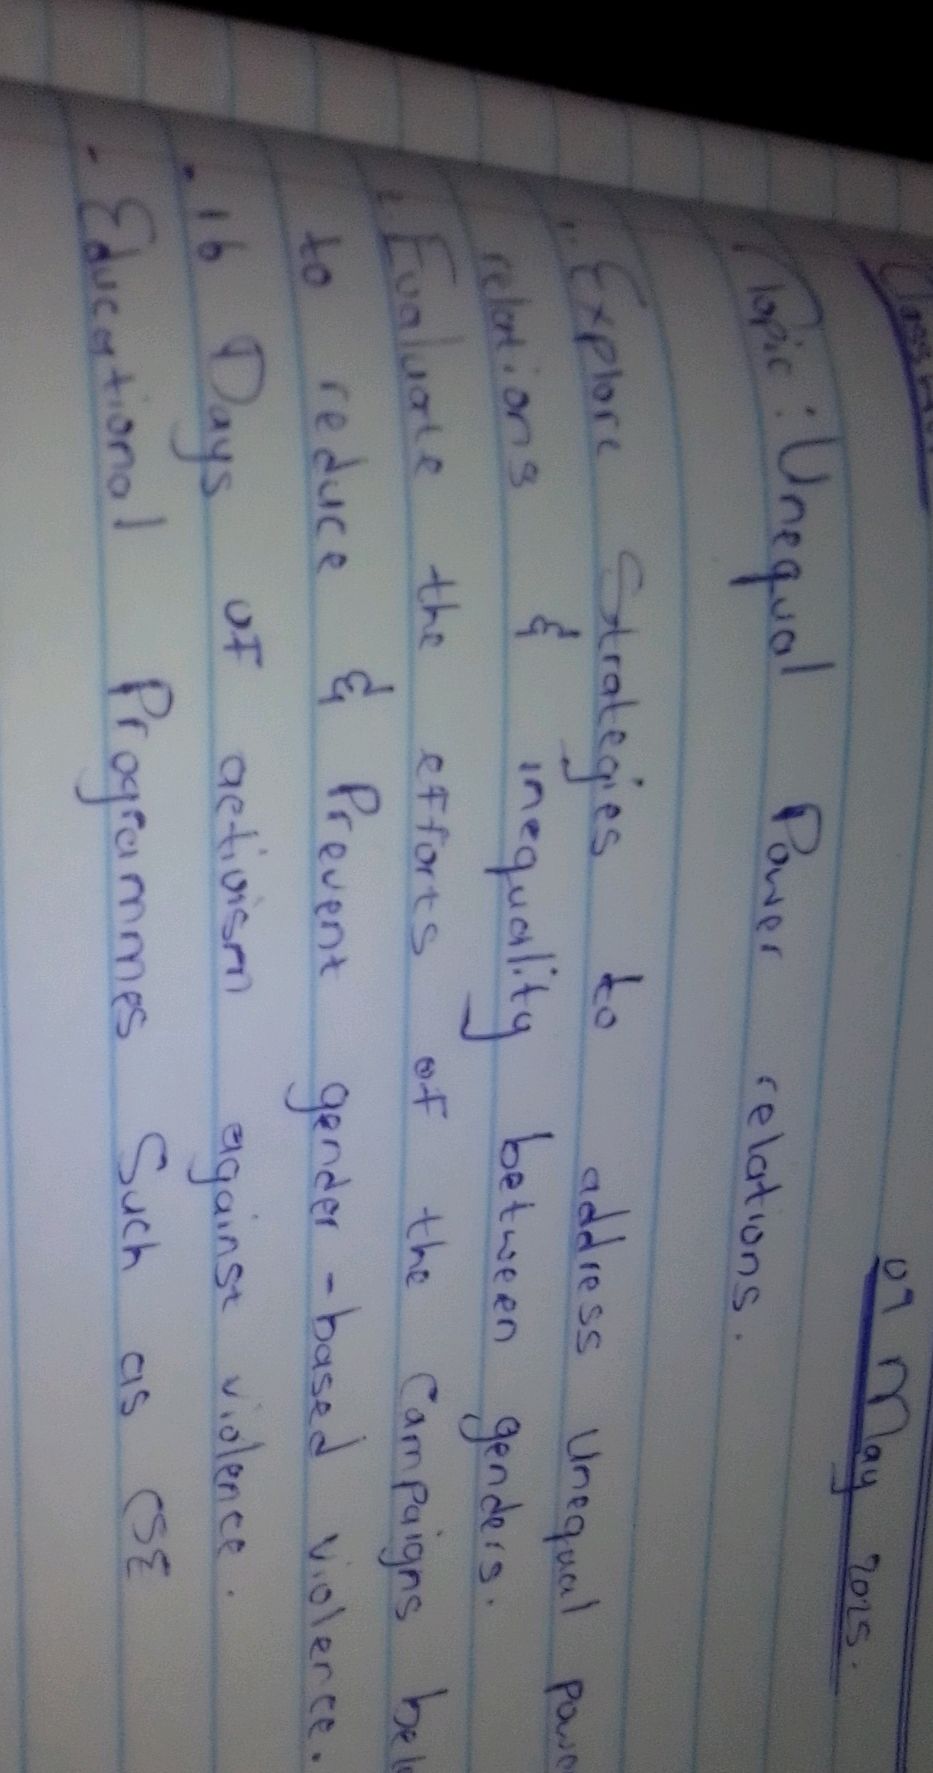 09 May 2025.
Topic: Unequal Power relations.
Explore Strategies to address Unequal
relations & inequality between genders.
Evaluate the efforts of the Campaigns
to reduce & Prevent gender-based violence.
. 16 Days of activism against violence.
. Educational Programmes Such as CSE